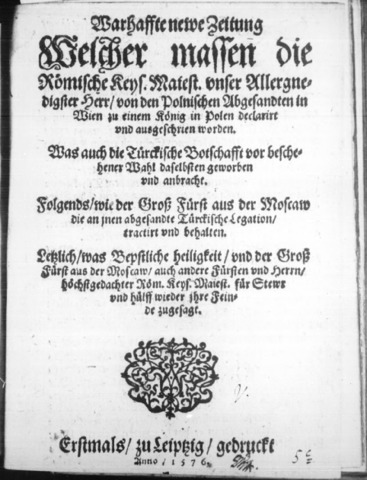 Warhaffte newe Zeitung
Welcher massen die
Römische Keys. Maiest. vnser Allergne-
digster Herr/ von den Polnischen Abgesandten in
Wien zu einem König in Polen declarirt
vnd ausgeschrien worden.
Was auch die Türckische Botschafft vor besche-
hener Wahl daselbsten geworben
vnd anbracht.
Folgends/ wie der Groß Fürst aus der Moscaw
die an jnen abgesandte Türckische Legation/
tractirt vnd behalten.
Letzlich/ was Bepstliche heiligkeit/ vnd der Groß
Fürst aus der Moscaw/ auch andere Fürsten vnd Herrn/
höchstgedachter Röm. Keys. Maiest. für Stewr
vnd hülff wieder jhre Fein-
de zugesagt.
Erstmals/ zu Leiptzig/ gedruckt
Anno/ 1576.